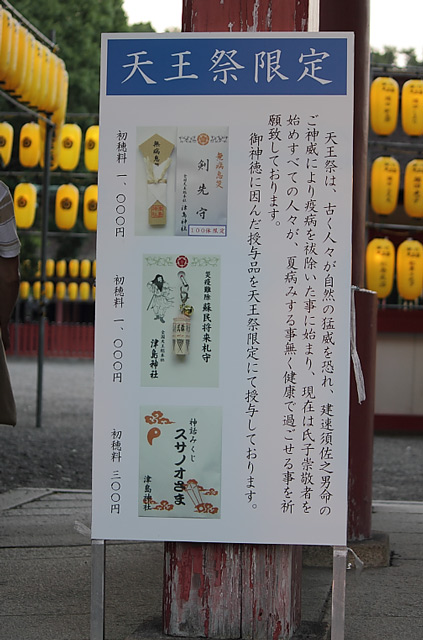 天王祭限定
天王祭は、古く人々が自然の猛威を恐れ、建速須佐之男命の
ご神威により疫病を祓除いた事に始まり、現在は氏子崇敬者を
始めすべての人々が、夏病みする事無く健康で過ごせる事を祈
願致しております。
御神徳に因んだ授与品を天王祭限定にて授与しております。
無病息災
剣先守
全国天王総本社
津島神社
100体限定
無病息
初穂料 一、〇〇〇円
災疫難除
蘇民将来札守
全国天王総本社
津島神社
初穂料 一、〇〇〇円
神話みくじ
スサノオさま
津島神社
初穂料 三〇〇円